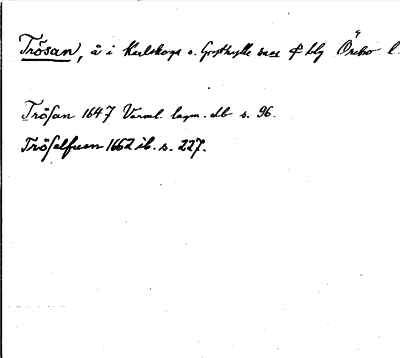 Trösan, å i Karlskoga o. Grythytte snr & blg Örebro l.
Trösan 1647 Värml. lagm. db s. 96.
Tröselfuen 1662 ib. s. 227.